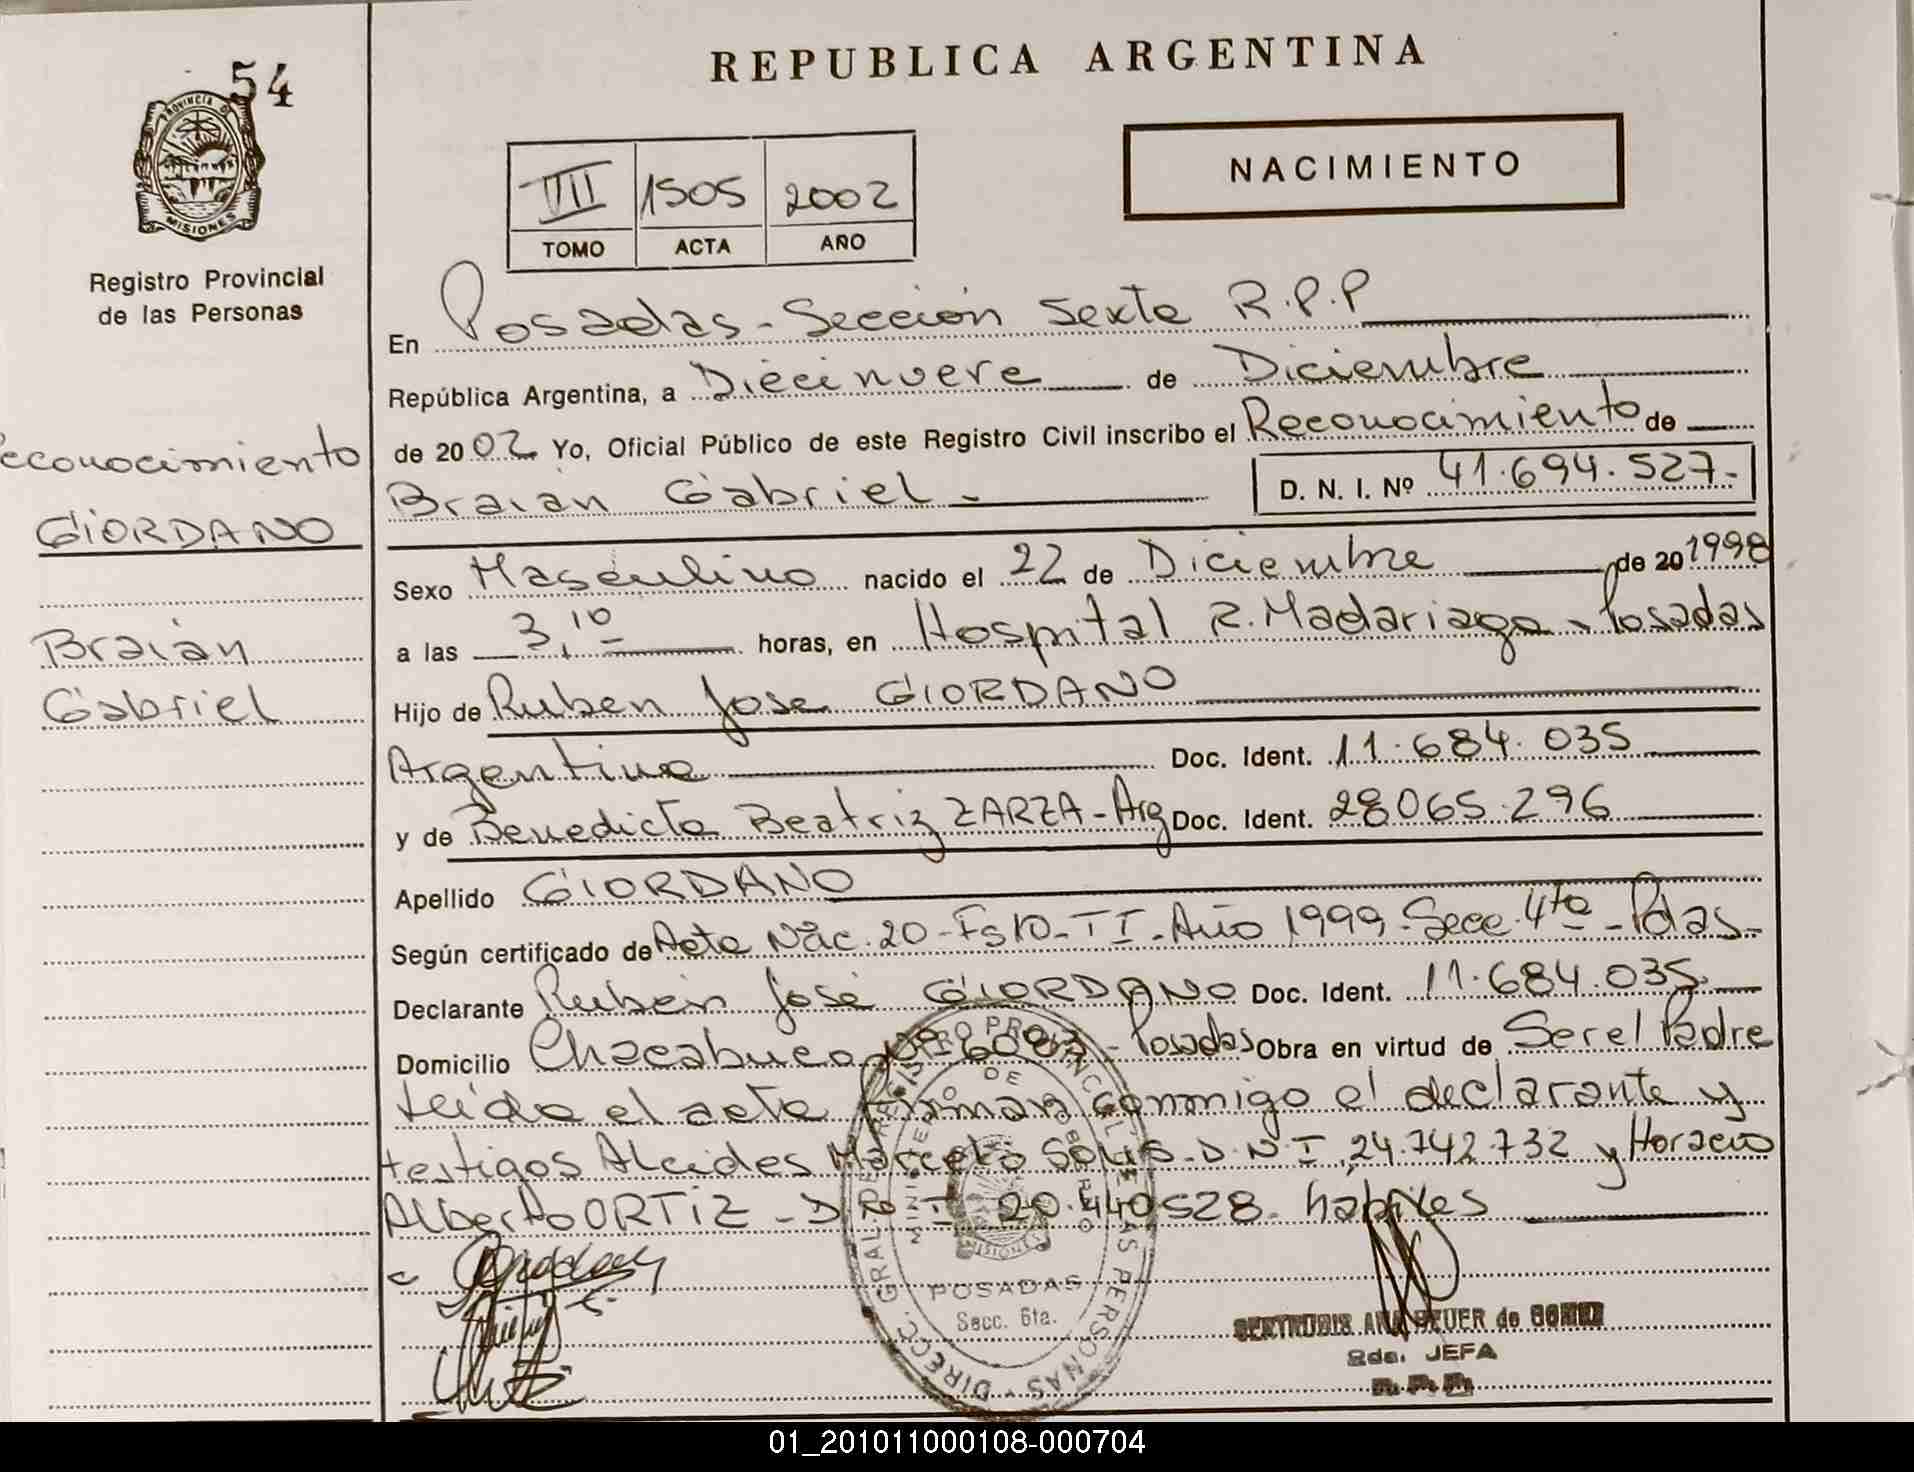 54
PROVINCIA DE
MISIONES
Registro Provincial
de las Personas
REPUBLICA ARGENTINA
VIII 1505 2002
TOMO ACTA AÑO
NACIMIENTO
En Posadas - Sección Sexta R.P.P
República Argentina, a Diecinueve de Diciembre
de 2002 Yo, Oficial Público de este Registro Civil inscribo el Reconocimiento de
Braian Gabriel - D. N. I. Nº 41.694.527-
Reconocimiento
GIORDANO
Braian
Gabriel
Sexo Masculino nacido el 22 de Diciembre de 20 1998
a las 3,10 horas, en Hospital R. Madariaga - Posadas
Hijo de Ruben Jose GIORDANO
Argentino Doc. Ident. 11.684.035
y de Benedicta Beatriz ZARZA - Arg Doc. Ident. 28065.296
Apellido GIORDANO
Según certificado de Acta Nac. 20 - Fs 10 - T I - Año 1999 - Secc. 4ta - Pdas -
Declarante Ruben José GIORDANO Doc. Ident. 11.684.035
Domicilio Chacabuco nº 6083 - Posadas Obra en virtud de Ser el Padre
Leída el acta firman conmigo el declarante y
testigos Alcides Marcelo SOLIS - D.N.I 24.742.732 y Horacio
Alberto ORTIZ - D.N.I 20.440528 - hábiles
DIRECC. GRAL. DE REGISTRO PROVINCIAL DE LAS PERSONAS
MINISTERIO DE GOBIERNO
MISIONES
POSADAS
Secc. 6ta.
GERTRUDIS ANA BEUER de GOMEZ
2da. JEFA
R.P.P.
01_201011000108-000704